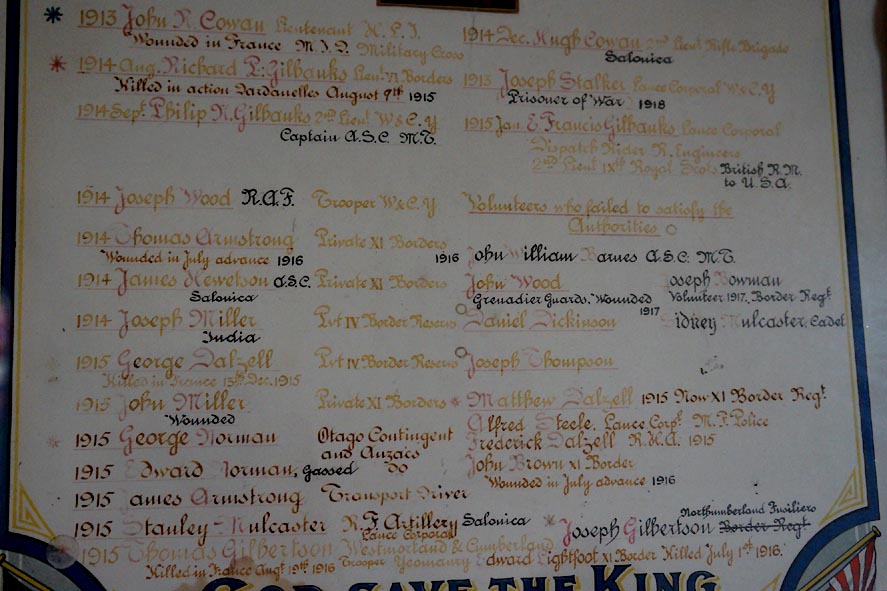 1913 John R. Cowan Lieutenant
Wounded in France M.I.D. Military Cross
1914 Aug. Richard P. Gilbanks Lieut. VI Borders
Killed in action Dardanelles August 9th 1915
1914 Sept. Philip R. Gilbanks 2nd Lieut. W & C. Y
Captain A.S.C. M.T.
1914 Joseph Wood R.A.F. Trooper W & C. Y
1914 Thomas Armstrong Private XI Borders
Wounded in July advance 1916
1914 James Hewetson A.S.C. Private XI Borders
Salonica
1914 Joseph Miller Pvt IV Border Reserve
India
1915 George Dalzell Pvt IV Border Reserve
Killed in France 13th Dec. 1915
1915 John Miller Private XI Borders
Wounded
1915 George Norman Otago Contingent
and Anzacs
1915 Edward Norman, Gassed Do
1915 James Armstrong Transport Driver
1915 Stanley Mulcaster R.F. Artillery Salonica
Lance Corporal
1915 Thomas Gilbertson Westmorland & Cumberland
Killed in France Augt. 19th 1916 Trooper Yeomanry
1914 Dec. Hugh Cowan 2nd Lieut Rifle Brigade
Salonica
1915 Joseph Stalker Lance Corporal W & C. Y
Prisoner of War 1918
1915 Jan E Francis Gilbanks Lance Corporal
Dispatch Rider R. Engineers
2nd Lieut IXth Royal Scots British R.M.
to U.S.A.
Volunteers who failed to satisfy the
Authorities
1916 John William Barnes A.S.C. M.T.
John Wood Joseph Bowman
Grenadier Guards. Wounded 1917 Volunteer 1917. Border Regt.
Daniel Dickinson Sidney Mulcaster, Cadet
Joseph Thompson
Matthew Dalzell 1915 Now XI Border Regt.
Alfred Steele. Lance Corpl. M.F. Police
Frederick Dalzell R.H.A. 1915
John Brown XI Border
Wounded in July advance 1916
Northumberland Fusiliers
Joseph Gilbertson Border Regt.
Edward Lightfoot XI Border Killed July 1st 1916.
GOD SAVE THE KING